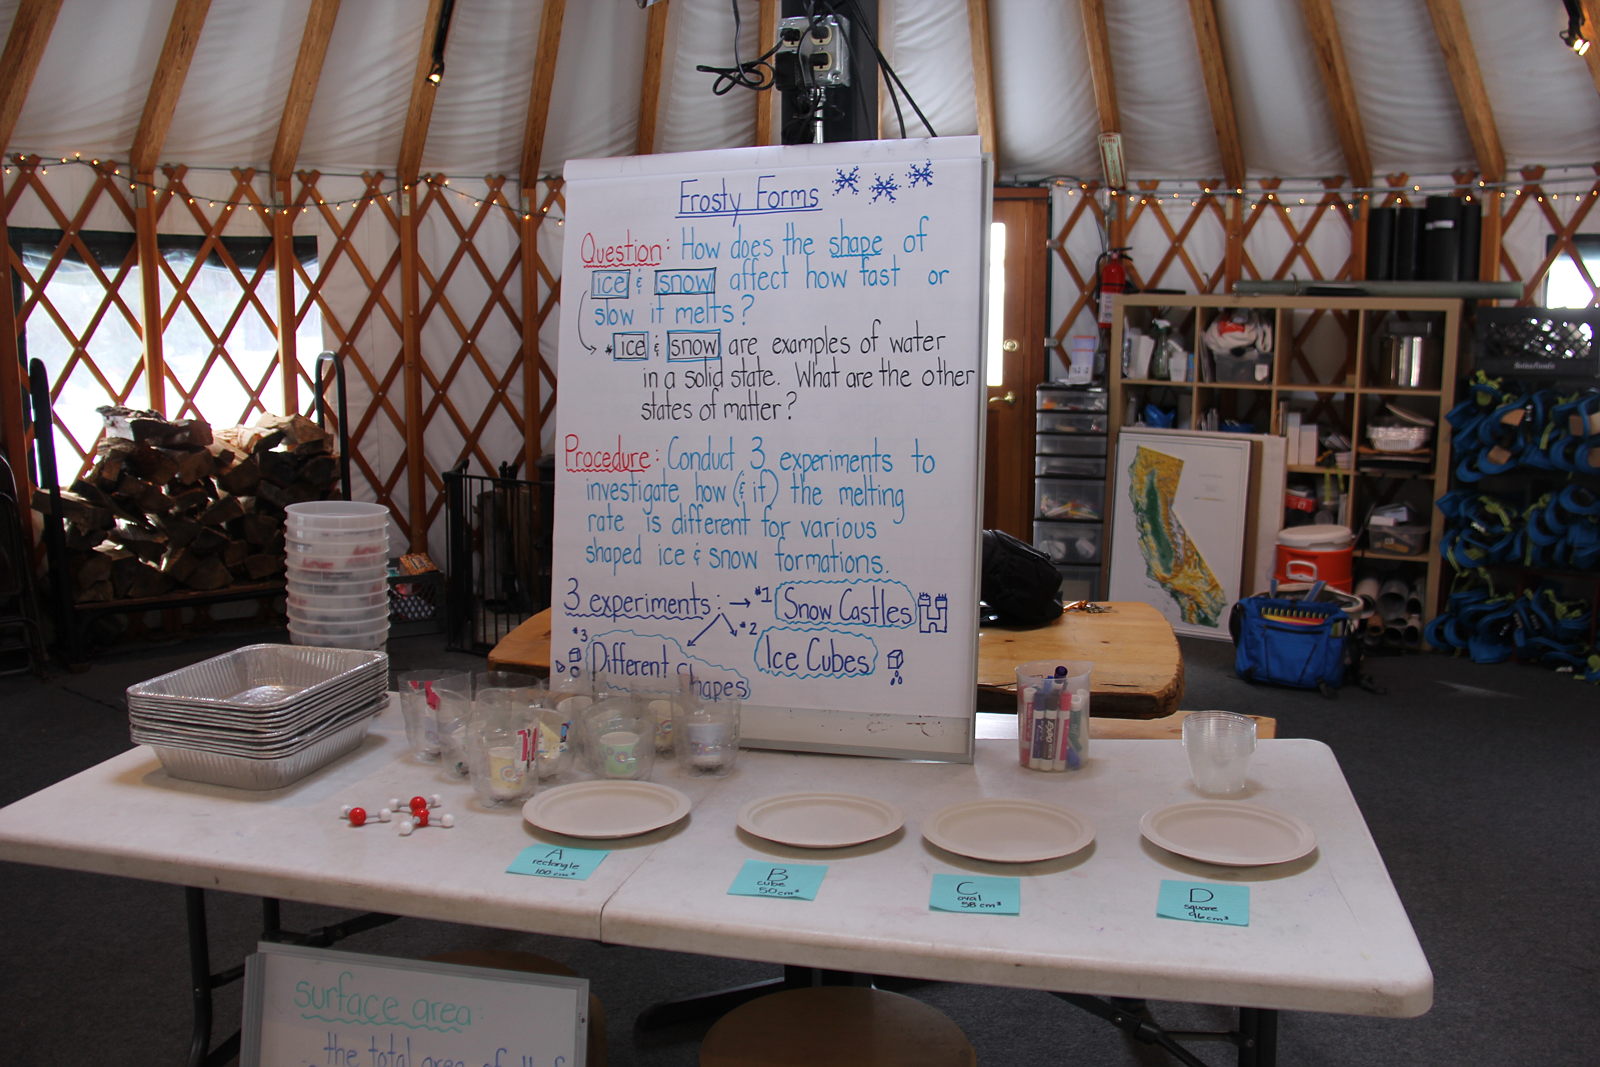 Frosty Forms
Question: How does the shape of
ice & snow affect how fast or
slow it melts?
* ice & snow are examples of water
in a solid state. What are the other
states of matter?
Procedure: Conduct 3 experiments to
investigate how (& if) the melting
rate is different for various
shaped ice & snow formations.
3 experiments: → #1 Snow Castles
#2 Ice Cubes
#3 Different Shapes
A
rectangle
100 cm³
B
cube
50 cm³
C
oval
58 cm³
D
square
96 cm³
surface area:
the total area of